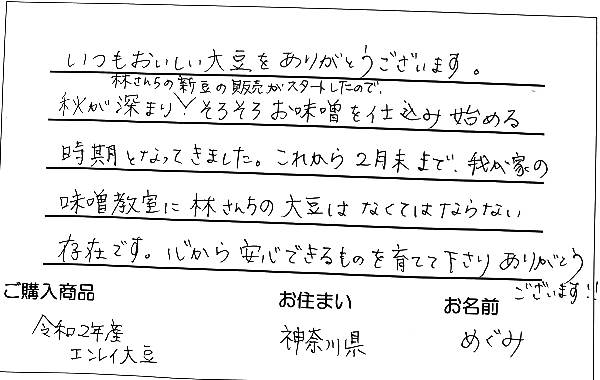 いつもおいしい大豆をありがとうございます。
林さんちの新豆の販売がスタートしたので、
秋が深まり、そろそろお味噌を仕込み始める
時期となってきました。これから2月末まで、我が家の
味噌教室に林さんちの大豆はなくてはならない
存在です。心から安心できるものを育てて下さりありがとう
ございます!!
ご購入商品
お住まい
お名前
令和2年産
エンレイ大豆
神奈川県
めぐみ